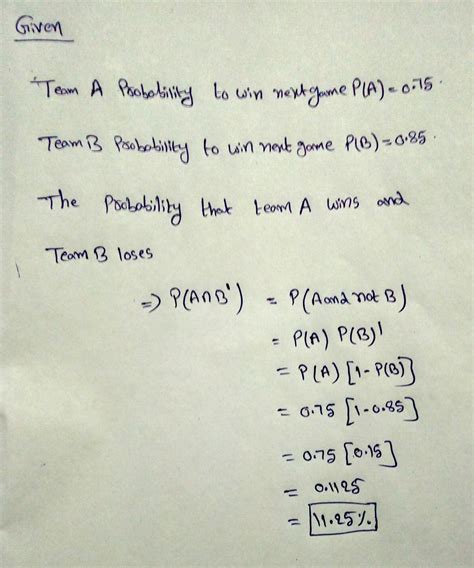 Given
Team A Probability to win next game P(A) = 0.75.
Team B Probability to win next game P(B) = 0.85.
The Probability that team A wins and
Team B loses
=> P(A∩B') = P(A and not B)
= P(A) P(B)'
= P(A) [1-P(B)]
= 0.75 [1-0.85]
= 0.75 [0.15]
= 0.1125
= 11.25%.